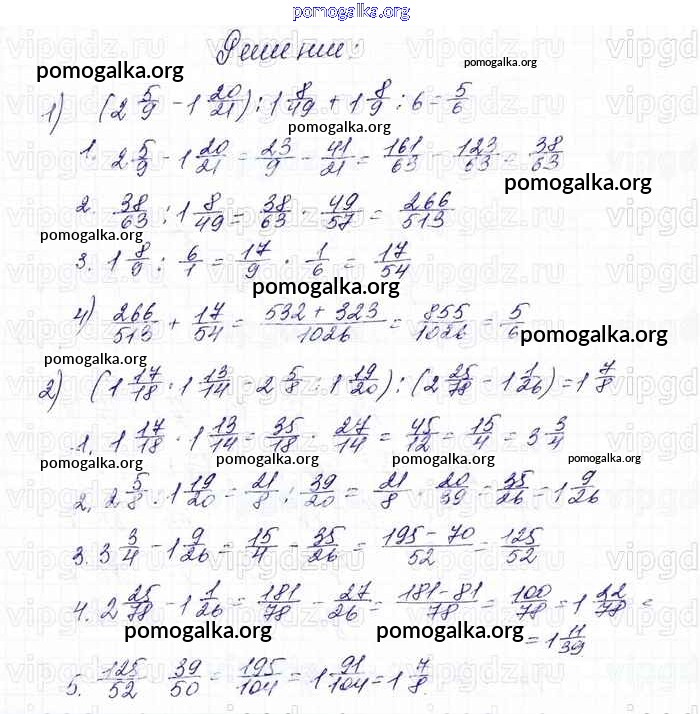 pomogalka.org
Решение:
pomogalka.org pomogalka.org
1) (2 5/9 - 1 20/21) : 1 8/49 + 1 8/9 : 6 = 5/6
pomogalka.org
1. 2 5/9 - 1 20/21 = 23/9 - 41/21 = 161/63 - 123/63 = 38/63
pomogalka.org
2. 38/63 : 1 8/49 = 38/63 · 49/57 = 266/513
pomogalka.org
3. 1 8/9 : 6/1 = 17/9 · 1/6 = 17/54
pomogalka.org
4) 266/513 + 17/54 = 532 + 323/1026 = 855/1026 = 5/6
pomogalka.org
pomogalka.org
2) (1 17/18 · 1 13/14 - 2 5/8 : 1 19/20) : (2 25/78 - 1 1/26) = 1 7/8
1. 1 17/18 · 1 13/14 = 35/18 · 27/14 = 45/12 = 15/4 = 3 3/4
pomogalka.org pomogalka.org pomogalka.org
2. 2 5/8 : 1 19/20 = 21/8 : 39/20 = 21/8 · 20/39 = 35/26 = 1 9/26
3. 3 3/4 - 1 9/26 = 15/4 - 35/26 = 195 - 70/52 = 125/52
4. 2 25/78 - 1 1/26 = 181/78 - 27/26 = 181 - 81/78 = 100/78 = 1 22/78 =
= 1 11/39
pomogalka.org pomogalka.org
5. 125/52 · 39/50 = 195/104 = 1 91/104 = 1 7/8